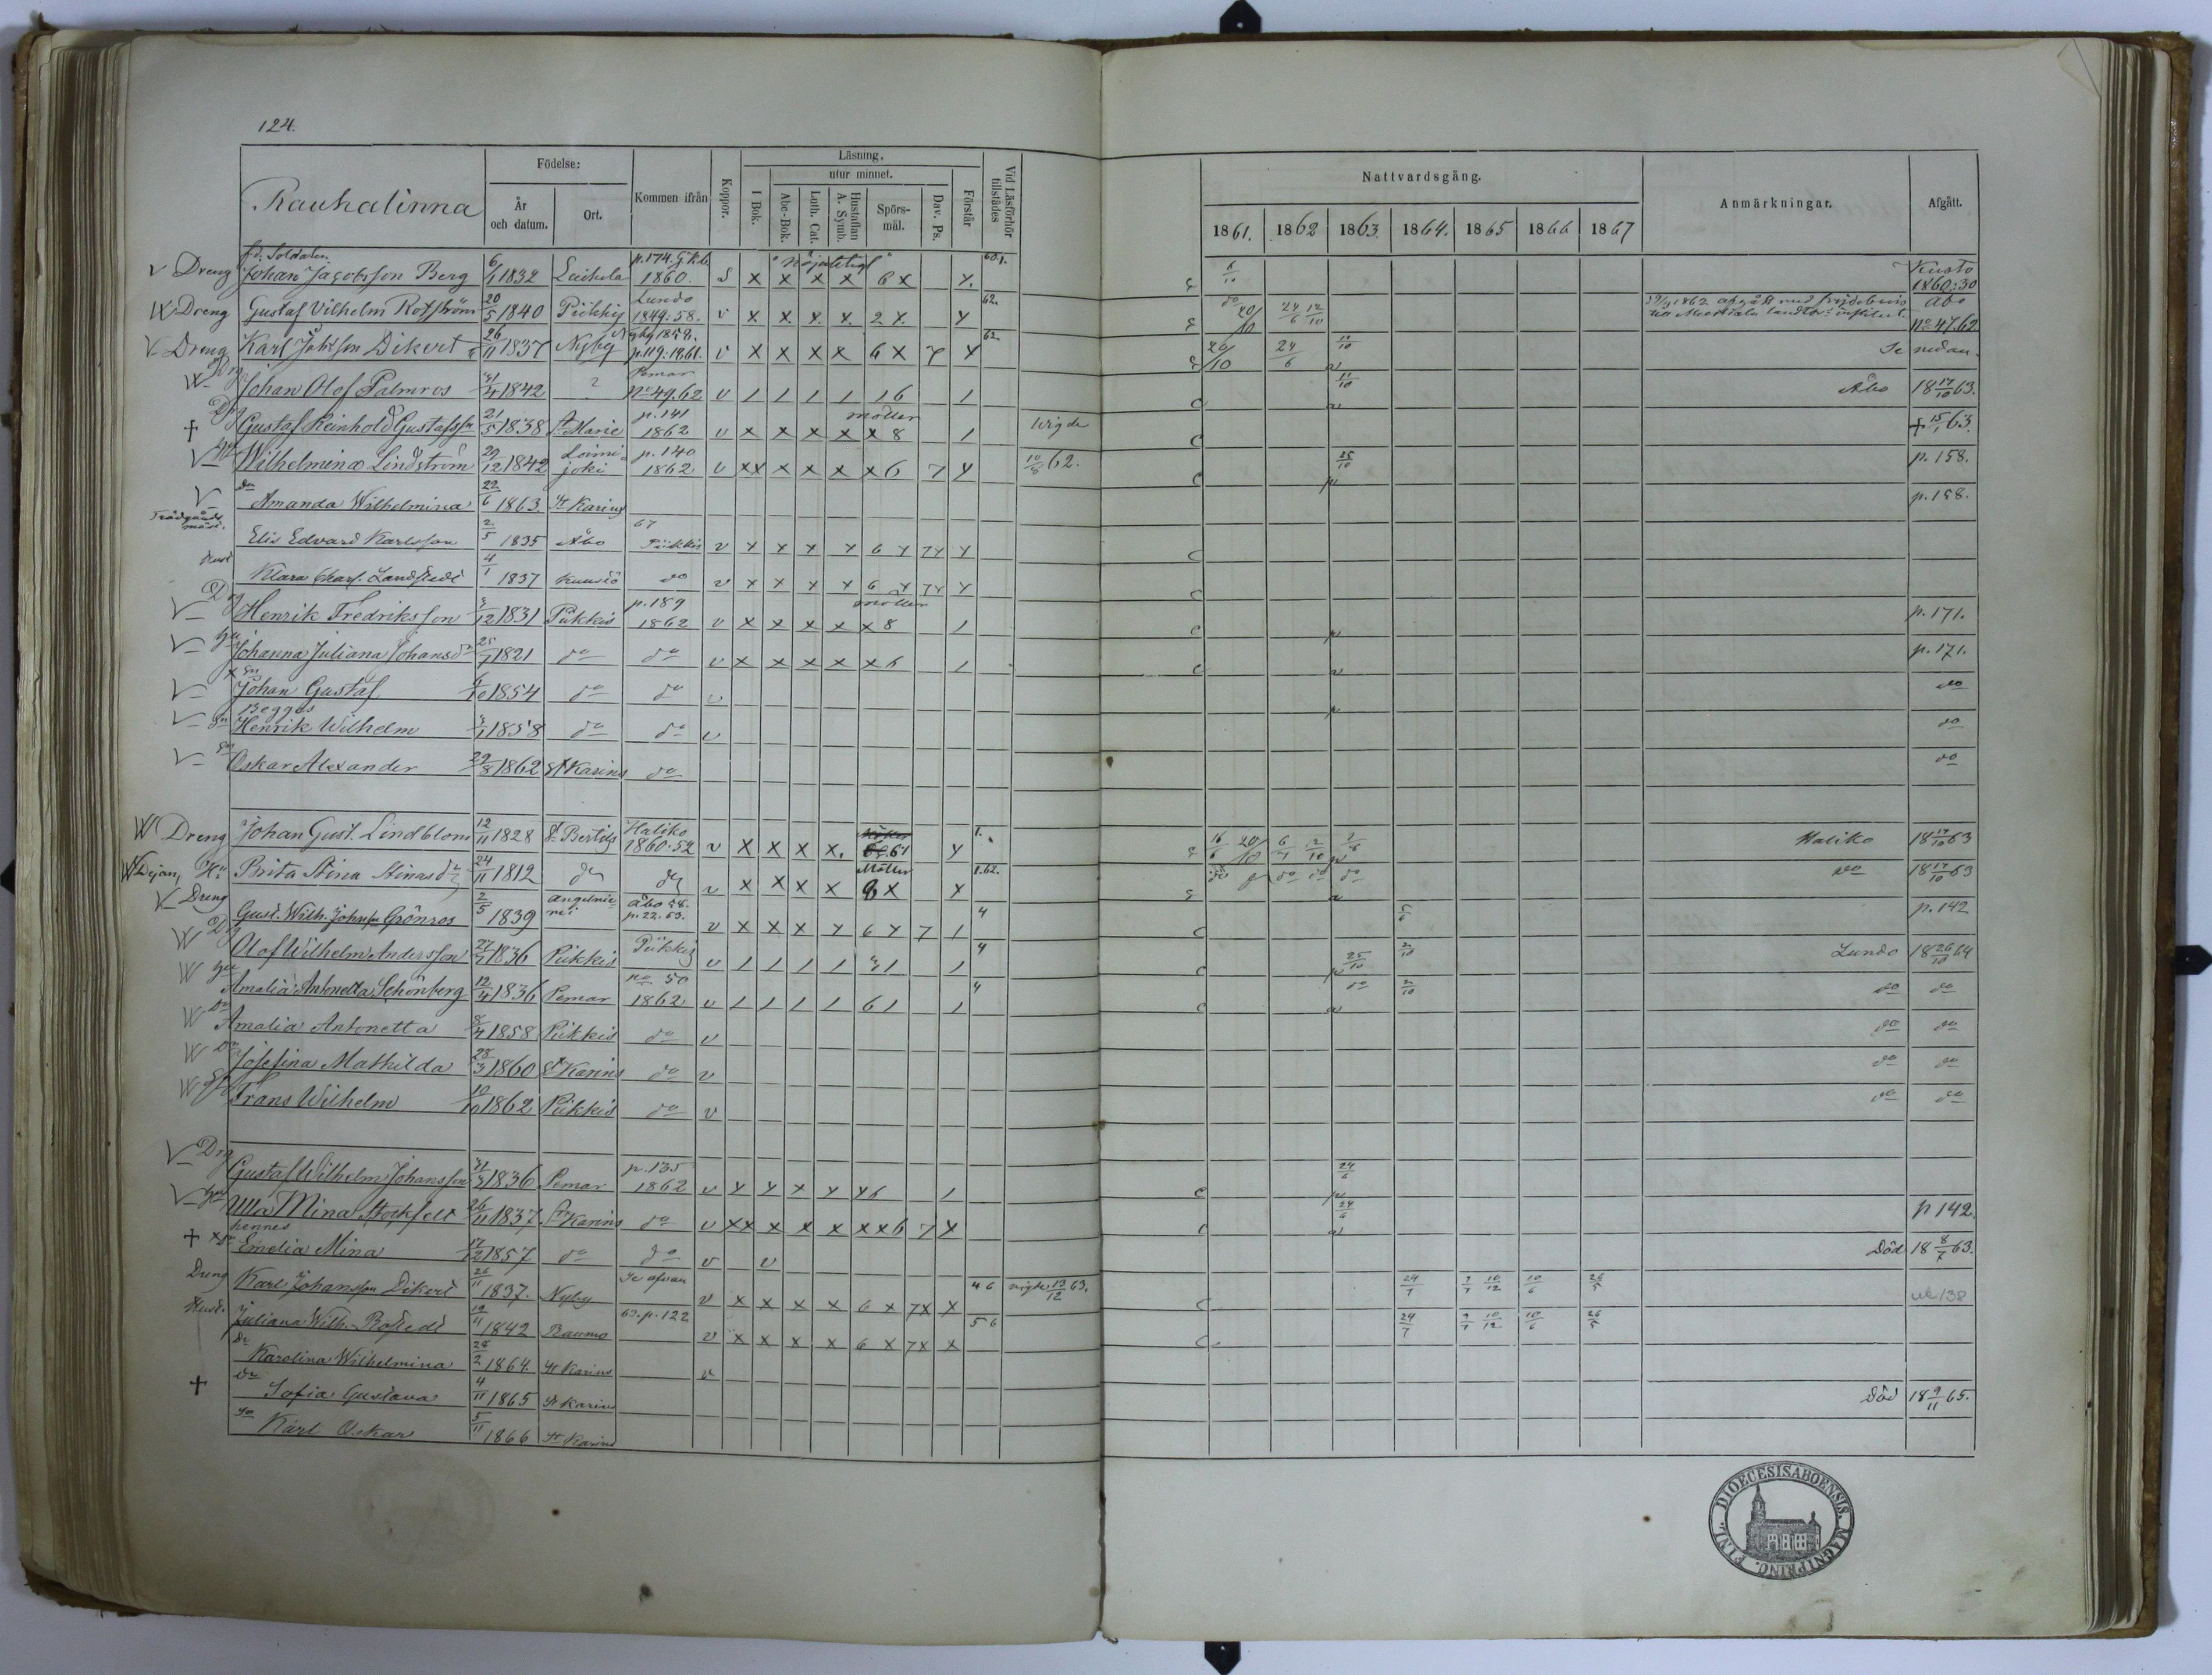 124.
Rauhalinna
Födelse:
År och datum.
Ort.
Kommen ifrån
Koppor.
Läsning.
utur minnet.
I Bok.
Abc-Bok.
Luth. Cat.
Hustaflan A. Symb.
Spörs-mål.
Dav. Ps.
Förstår
Vid Läsförhör tillstädes
Nattvardsgång.
1861. 1862 1863. 1864. 1865 1866 1867
Anmärkningar.
Afgått.
fd. Soldaten
Dreng Johan Jacobsson Berg 6/1 1832 p.174 1860. S x x x x 6 x 60.1. 6/10 Kusto 1860:30
Dreng Gustaf Vilhelm 20/5 1840 Piikkis Lundo 1849:58. v x x x x 2 x 62. do 20/10 24/6 12/10 1862 afgått med Åbo No 47.62
Dreng Karl Johsson Dikert 26/11 1837 Nyby Nyby 1858. p.119:1861. v x x x x 6 x 7 62. 20/10 24/6 11/10 Se nedan.
Johan Olof Palmros 1842 ? Pemar No 49.62 v 1 1 1 1 1 6 1 11/10 Åbo 18 17/10 63.
+ Gustaf Reinhold Gustafsson 21/5 1838 St Marie p.141 1862 v x x x x x 8 1 Wigde + 15/1 63.
Wilhelmina Lindström 29/12 1842 Loimijoki p.140 1862 v xx x x x x 6 7 10/8 62. 25/10 p.158.
dr Amanda Wilhelmina 22/6 1863. St Karins p.158.
Trädgårdsmäst. Elis Edvard Karlsson 2/5 1835 Åbo 67 Piikkis v x x x x 6 x 7x x
Hust Klara Charl. Landstedt 4/1 1837 Kuustö do v x x x x 6 x 7x x
Henrik Fredriksson 1831 Piikkis p.189 1862 v x x x x x 8 1 p.171.
Johanna Juliana Johansdr 25/7 1821 do do v x x x x x 6 1 p.171.
Johan Gustaf 1854 do do v do
Begges
Henrik Wilhelm 1858 do do v do
Oskar Alexander 1862 St Karins do do
Dreng Johan Gust. Lindblom 12/11 1828 St Bertils Haliko 1860.52 v x x x x. 61 1. 16/6 20/10 Haliko 18 17/10 63
Dejan, Hu Brita Stina Stinasdr 24/11 1812 do do v x x x x 8 x 1.62. do do 18 17/10 63
Dreng Gust. Wilh. Johsson Grönros 2/5 1839 Angelniemi Åbo 58. p.22.63. v x x x x 6 x 7 1 4 5/6 p.142
Olof Wilhelm Andersson 1836 Piikkis Piikkis v 1 1 1 1 1 4 25/10 2/10 Lundo 18 26/10 64
Amalia Antonetta Schönberg 12/4 1836 Pemar no 50 1862. v 1 1 1 1 6 1 1 4 do 2/10 do do
Amalia Antonetta 8/4 1858 Piikkis do v do do
Josefina Mathilda 28/3 1860 St Karins do v do do
Frans Wilhelm 10/10 1862 Piikkis do v do do
Gustaf Wilhelm Johansson 1836 Pemar p.135 1862 v x x x x x 6 1 24/6
Ulla Mina Stockfelt 26/11 1837 St Karins do v xx x x x x x 6 7 x 24/6 p 142.
hennes
+ Emelia Mina 17/12 1857 do do v v Död 18 8/7 63.
Dreng Karl Johansson Dikert 26/11 1837. Nyby Se ofvan v x x x x 6 x 7x x 4 6 vigde 13/12 63. 24/7 7/7 10/12 10/6 26/5 138
Hust. Juliana Wilh. 1842 Raumo 63.p.122 v x x x x 6 x 7x x 5 6 24/7 7/7 10/12 10/6 26/5
dr Karolina Wilhelmina 1864. St Karins v
+ dr Sofia Gustava 4/11 1865 St Karins Död 18 9/11 65.
Karl Oskar 5/11 1866 St Karins
FINL. DIOECESIS ABOENSIS. MAGNI PRINC.